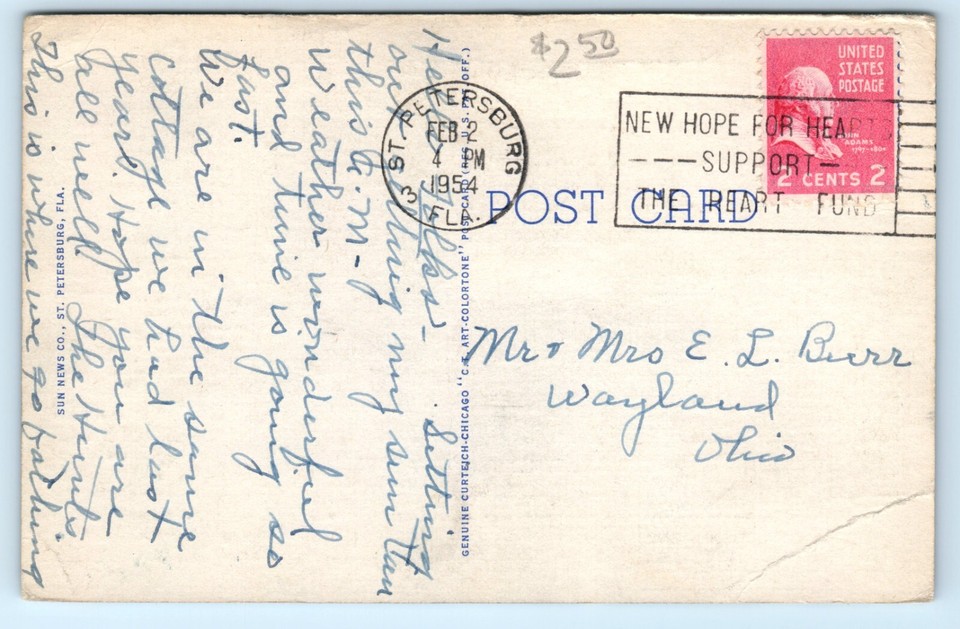 Hello Folks - Sitting
out getting my sun tan
this A.M -
Weather wonderful
and time is going so
fast.
We are in the same
cottage we had last
year. Hope you are
all well. The Hunts.
This is where we go bathing
SUN NEWS CO., ST. PETERSBURG, FLA.
GENUINE CURTEICH-CHICAGO "C.T. ART-COLORTONE" POST CARD (REG. U.S. PAT. OFF.)
$2.50
ST. PETERSBURG
FEB 2
4 PM
1954
FLA.
3
NEW HOPE FOR HEARTS
---SUPPORT-
THE HEART FUND
UNITED
STATES
POSTAGE
JOHN
ADAMS
1797-1801
2 CENTS 2
POST CARD
Mr & Mrs E. L. Burr
Wayland
Ohio